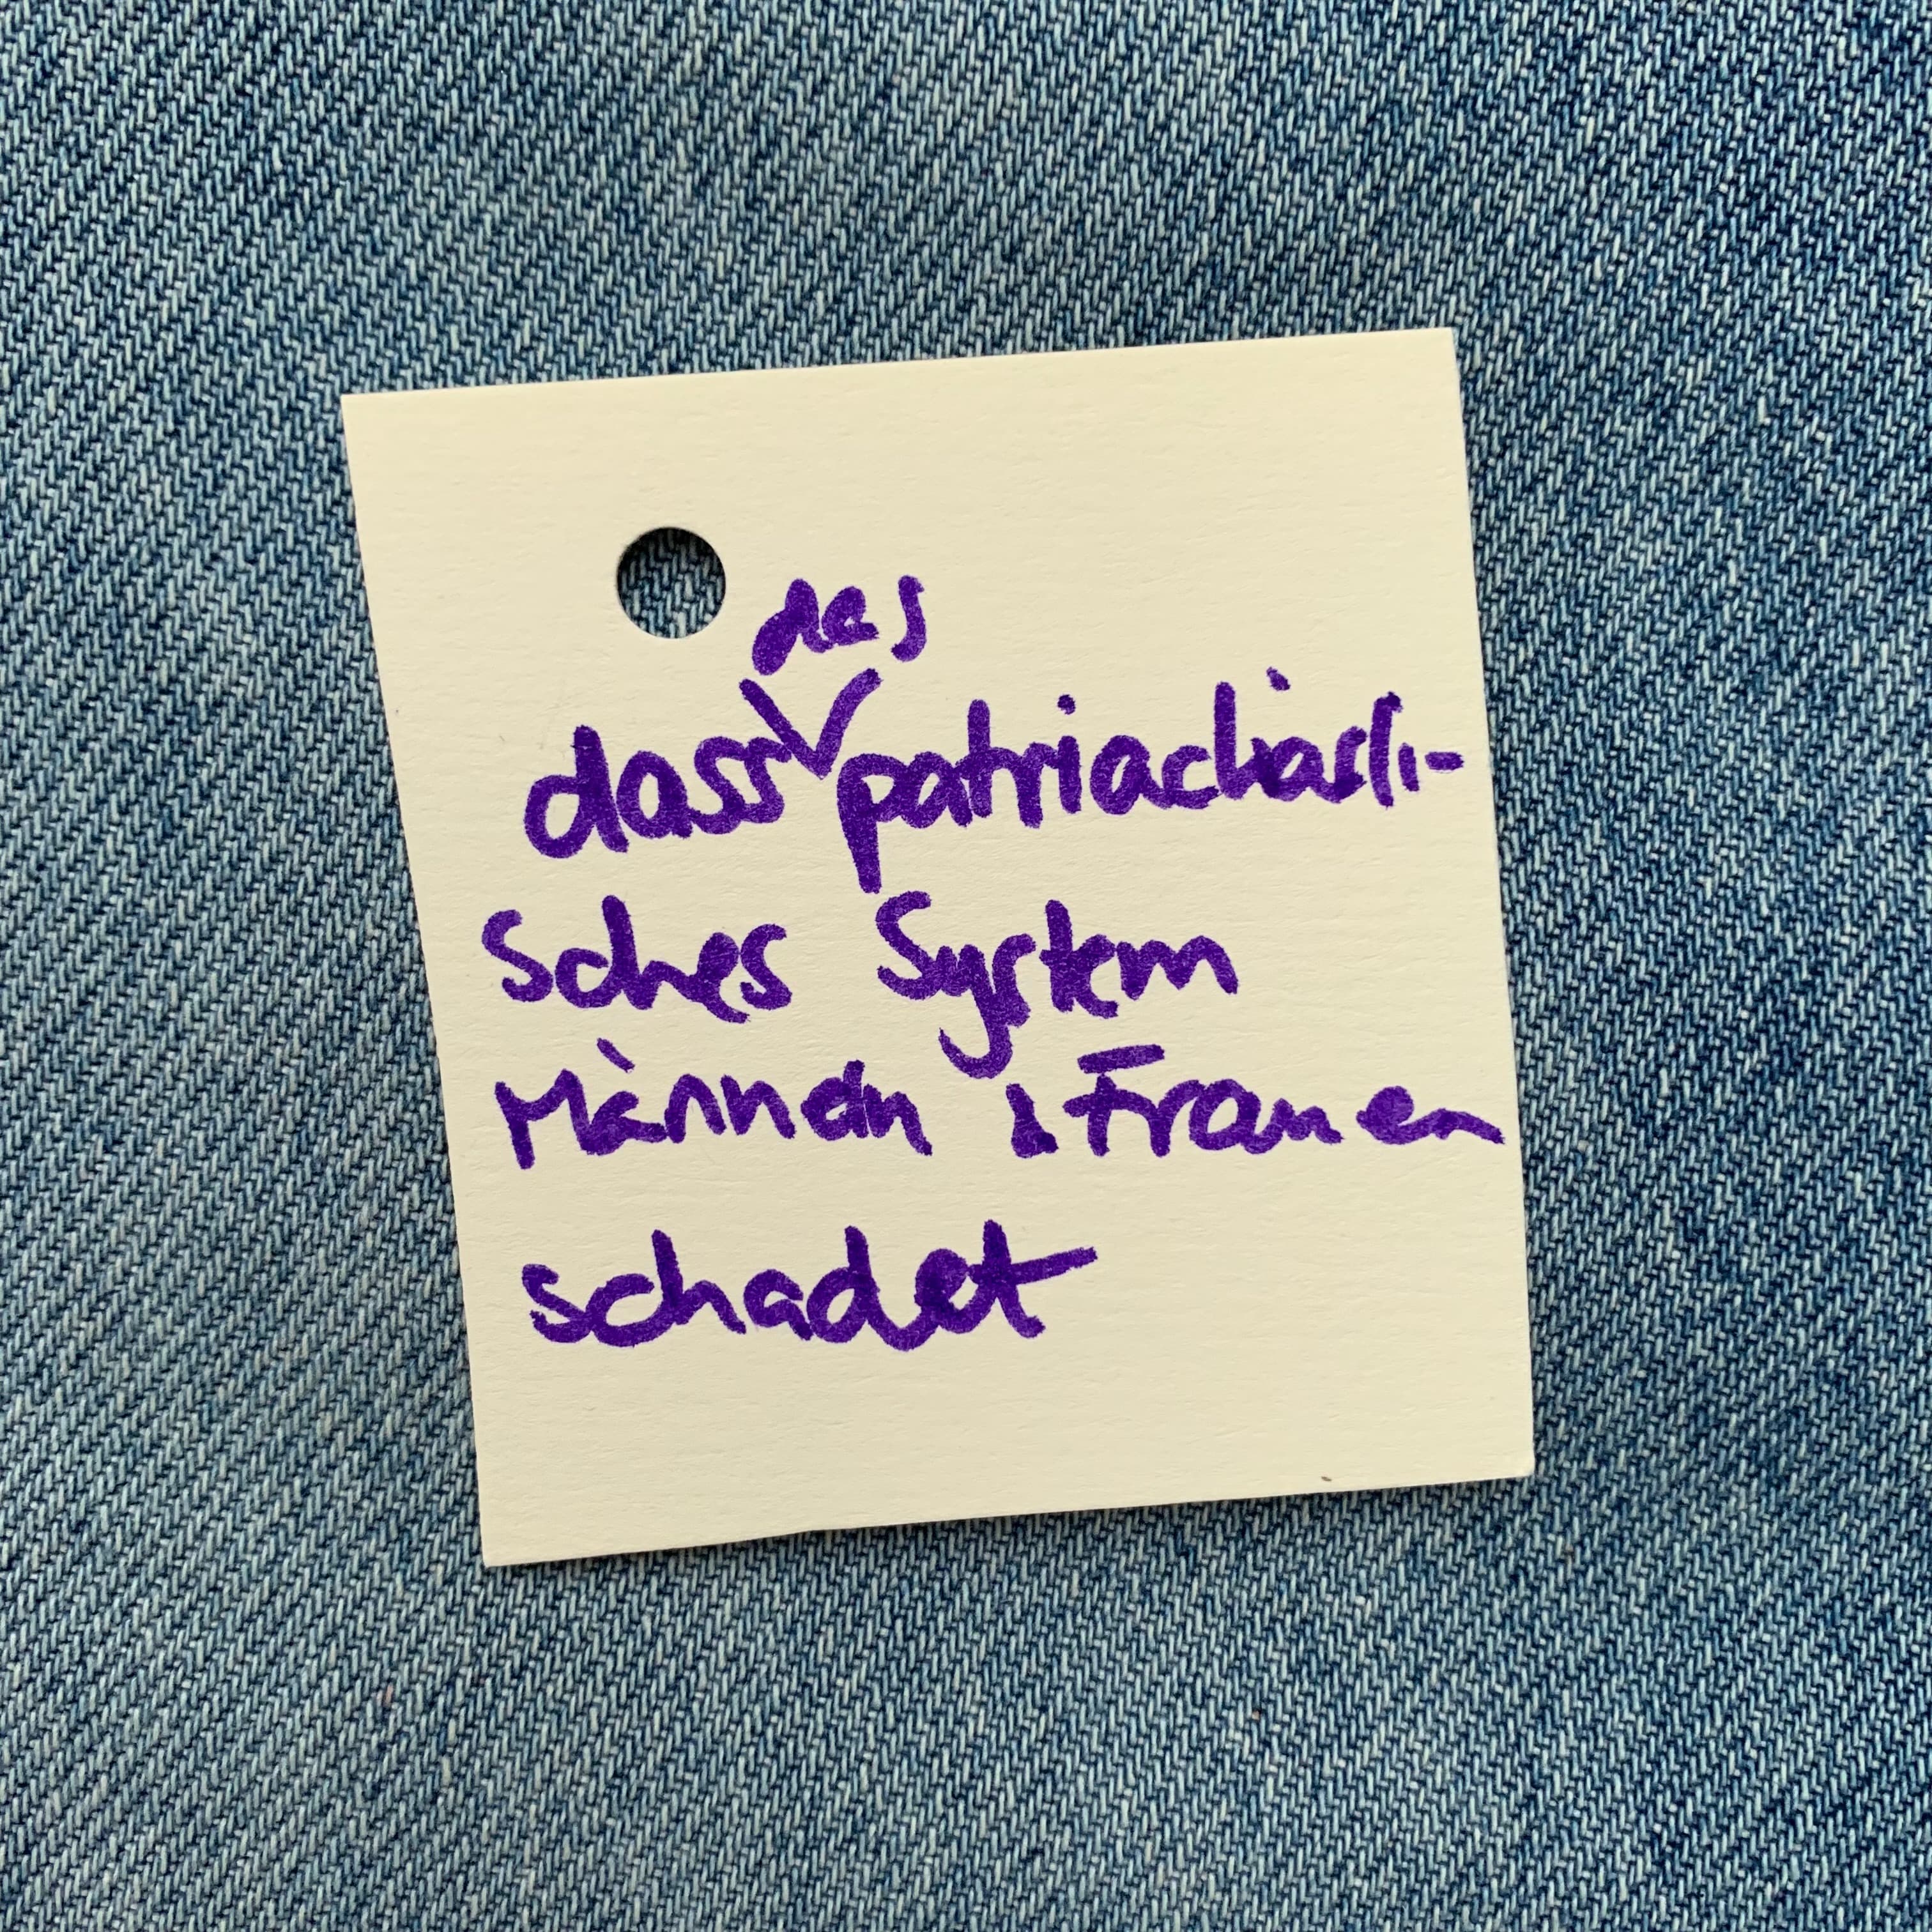 das
dass patriachàrli-
sches System
Männern & Frauen
schadet